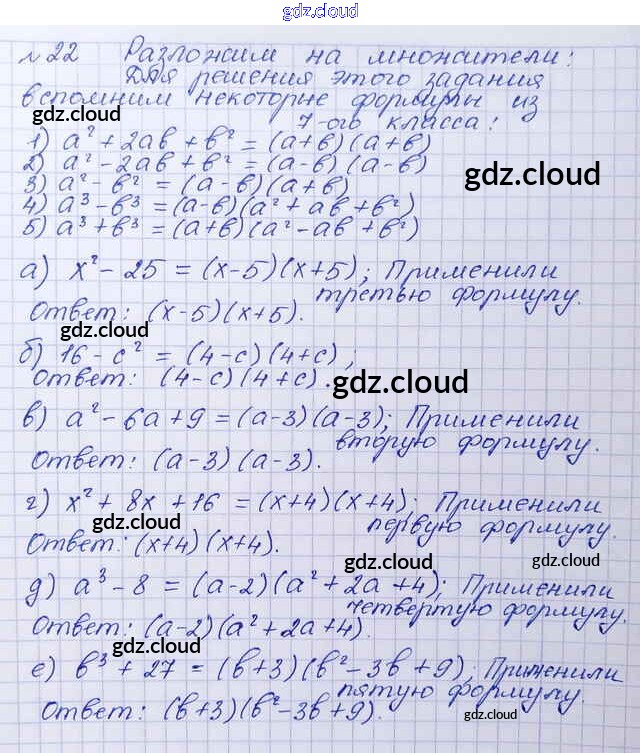 gdz.cloud
№22 Разложим на множители:
Для решения этого задания
вспомним некоторые формулы из
gdz.cloud
7-ого класса:
1) a² + 2ab + b² = (a+b)(a+b)
2) a² - 2ab + b² = (a-b)(a-b)
3) a² - b² = (a-b)(a+b)
gdz.cloud
4) a³ - b³ = (a-b)(a² + ab + b²)
5) a³ + b³ = (a+b)(a² - ab + b²)
а) x² - 25 = (x-5)(x+5); Применили
третью формулу.
Ответ: (x-5)(x+5).
gdz.cloud
б) 16 - c² = (4-c)(4+c);
Ответ: (4-c)(4+c).
gdz.cloud
в) a² - 6a + 9 = (a-3)(a-3); Применили
вторую формулу.
Ответ: (a-3)(a-3).
г) x² + 8x + 16 = (x+4)(x+4); Применили
gdz.cloud
первую формулу.
Ответ: (x+4)(x+4).
gdz.cloud
gdz.cloud
д) a³ - 8 = (a-2)(a² + 2a + 4); Применили
четвертую формулу.
Ответ: (a-2)(a² + 2a + 4).
gdz.cloud
е) b³ + 27 = (b+3)(b² - 3b + 9); Применили
пятую формулу.
Ответ: (b+3)(b² - 3b + 9).
gdz.cloud